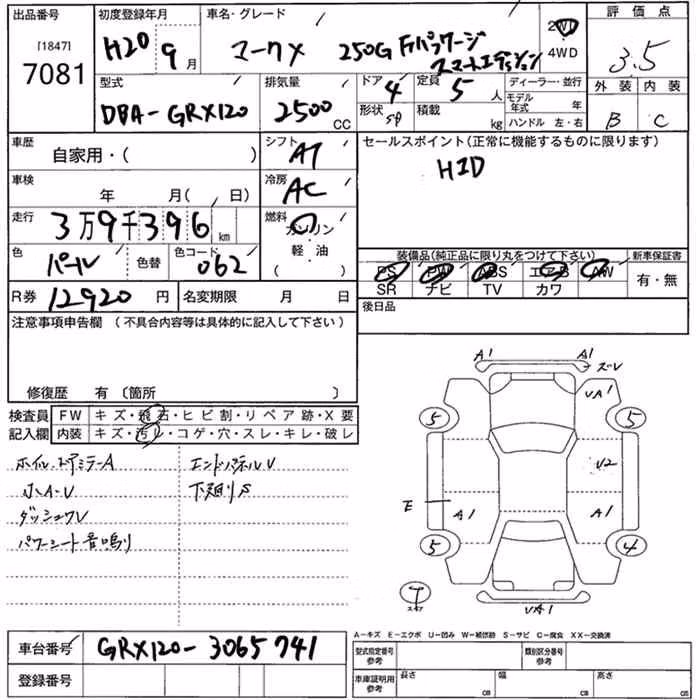 出品番号 初度登録年月 車名・グレード 評価点
[1847]
7081
H20 9月 マークX 250G Fパッケージ 2WD
スマートエディション 4WD
3.5
型式 排気量 ドア 定員 ディーラー・並行 外装 内装
DBA-GRX120 2500CC 4 5人 モデル年式 年
形状 積載 kg ハンドル 左・右 B C
車歴 シフト セールスポイント(正常に機能するものに限ります)
自家用・( ) AT HID
車検 冷房
年 月( 日) AC
走行 燃料
3万9千396km ガソリン
軽・油
( )
色 色替 色コード
パール 062
装備品(純正品に限り丸をつけて下さい) 新車保証書
PS PW ABS エアB AW 有・無
SR ナビ TV カワ
R券 12920円 名変期限 月 日
後日品
注意事項申告欄 (不具合内容等は具体的に記入して下さい)
修復歴 有 〔箇所 〕
検査員 FW キズ・飛石・ヒビ割・リペア跡・X要
記入欄 内装 キズ・汚レ・コゲ・穴・スレ・キレ・破レ
ホイル・ドアミラーA エンドパネルV
小A・V 下廻りS
ダッシュV
パワーシート音鳴り
A1 A1
ズレV
VA1
5 5
V2
E A1 A1
5 4
T
VA1
A-キズ E-エクボ U-凹み W-補修跡 S-サビ C-腐食 XX-交換済
車台番号 GRX120-3065741
登録番号
型式指定番号 参考 類別区分番号 参考
車庫証明用 参考 長さ cm 幅 cm 高さ cm